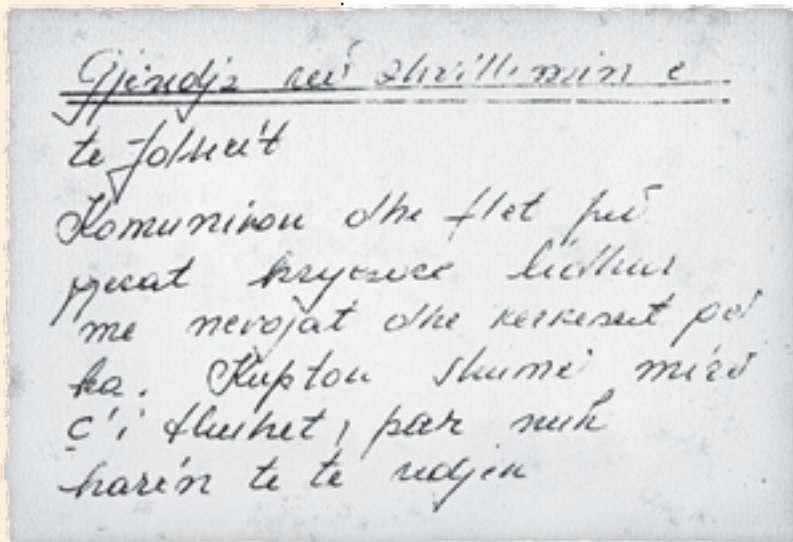 Gjendje në zhvillimin e
të folurit
Komunikon dhe flet për
gjërat kryesore lidhur
me nevojat dhe kerkesat që
ka. Kupton shumë mirë
ç'i thuhet, por nuk
te te